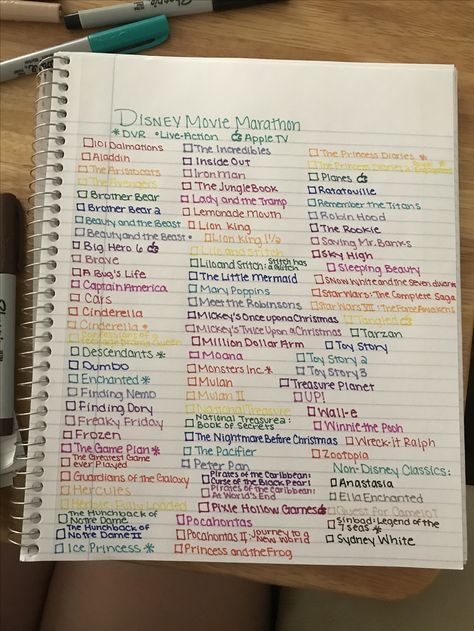 Disney Movie Marathon
*DVR •Live-Action Apple TV
101 Dalmations
Aladdin
The Aristocats
The Avengers
Brother Bear
Brother Bear 2
Beauty and the Beast
Beauty and the Beast •
Big Hero 6
Brave
A Bug's Life
Captain America
Cars
Cinderella
Cinderella •
Confessions of a
Teenage Drama Queen
Descendants *
Dumbo
Enchanted *
Finding Nemo
Finding Dory
Freaky Friday
Frozen
The Game Plan *
The Greatest Game
ever Played
Guardians of the Galaxy
Hercules
Herbie Fully Loaded
The Hunchback of
Notre Dame
The Hunchback of
Notre Dame II
Ice Princess *
The Incredibles
Inside Out
Iron Man
The Jungle Book
Lady and the Tramp
Lemonade Mouth
Lion King
Lion King 1½
Lilo and Stitch
Lilo and Stitch: Stitch has
a Glitch
The Little Mermaid
Mary Poppins
Meet the Robinsons
Mickey's Once upon a Christmas
Mickey's Twice Upon a Christmas
Million Dollar Arm
Moana
Monsters Inc. *
Mulan
Mulan II
National Treasure
National Treasure 2:
Book of Secrets
The Nightmare Before Christmas
The Pacifier
Peter Pan
Pirates of the Caribbean:
Curse of the Black Pearl
Pirates of the Caribbean:
At World's End
Pixie Hollow Games
Pocahontas
Pocahontas II: Journey to a
New World
Princess and the Frog
The Princess Diaries *
The Princess Diaries 2
Planes
Ratatouille
Remember the Titans
Robin Hood
The Rookie
Saving Mr. Banks
Sky High
Sleeping Beauty
Snow White and the Seven dwarves
Star Wars: The Complete Saga
Star Wars VII: The Force Awakens
Tangled
Tarzan
Toy Story
Toy Story 2
Toy Story 3
Treasure Planet
UP!
Wall-e
Winnie the Pooh
Wreck-it Ralph
Zootopia
Non-Disney Classics:
Anastasia
Ella Enchanted
Quest for Camelot
Sinbad: Legend of the
7 Seas *
Sydney White